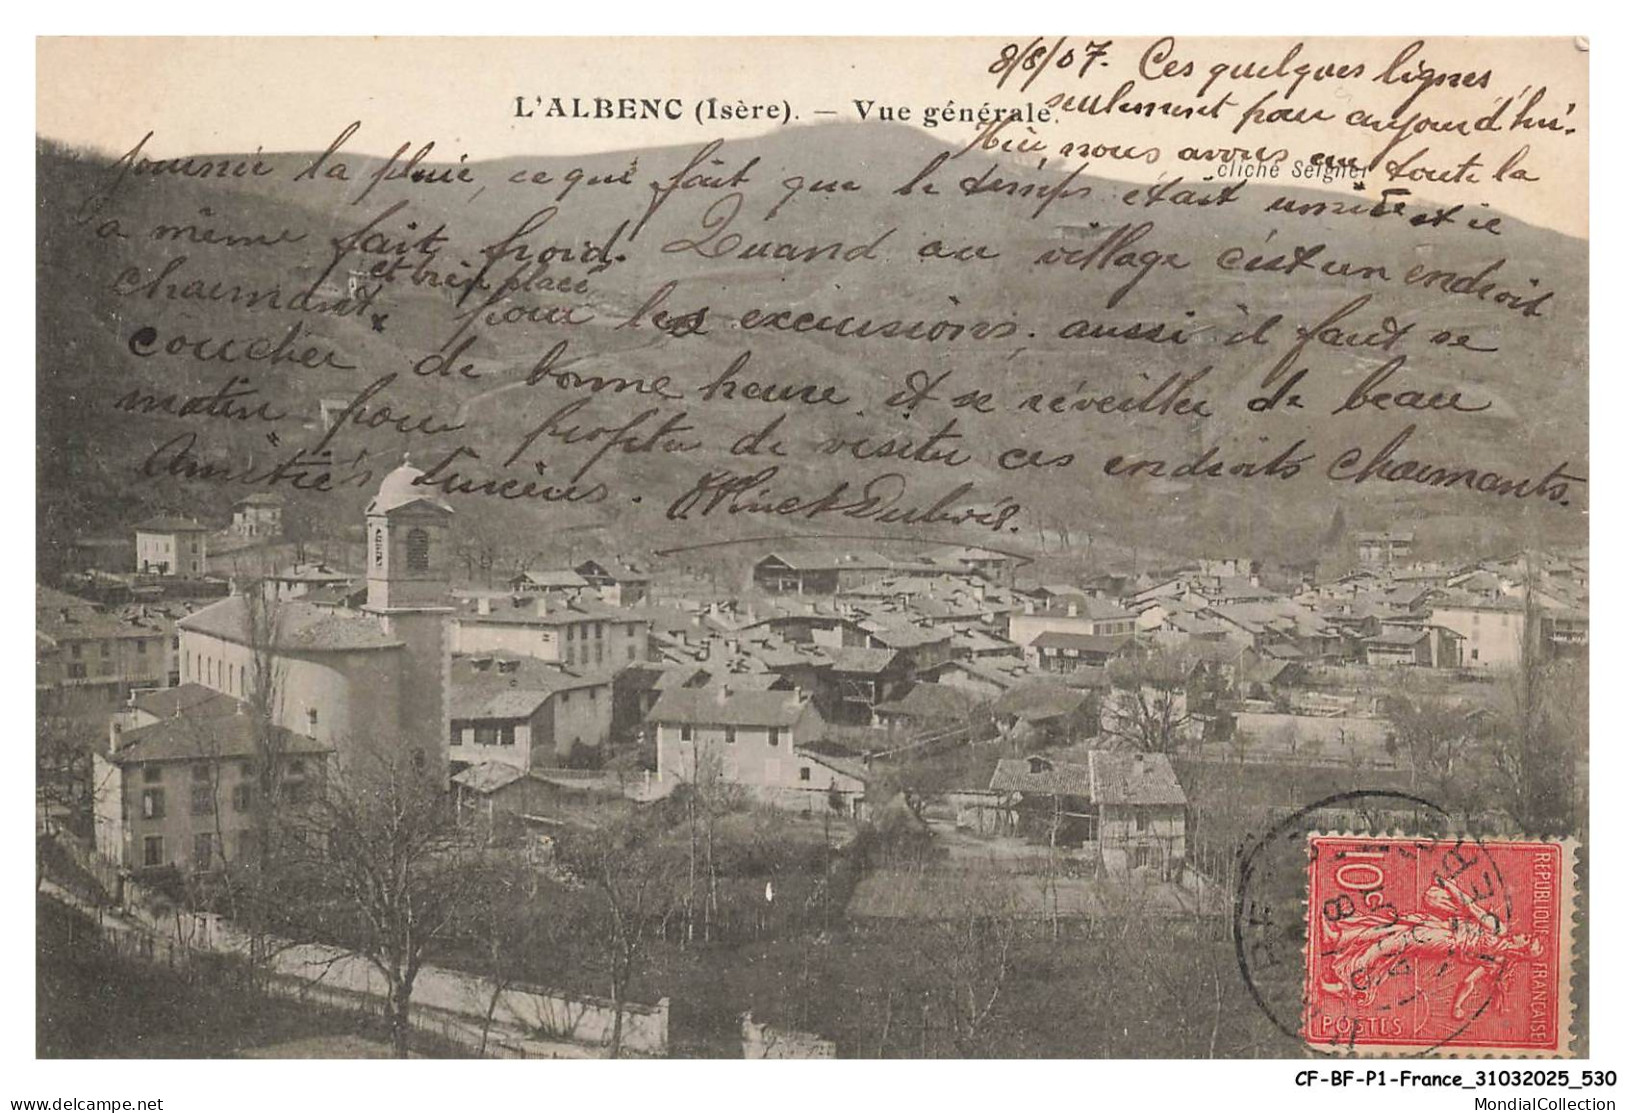 8/8/07. Ces quelques lignes
L'ALBENC (Isère). — Vue générale.
seulement pour aujourd'hui.
Hier nous avons eu toute la
cliché Seigner
journée la pluie, ce qui fait que le temps était et ici
a même fait froid. Quand au village c'est un endroit
et bien placé
charmant pour les excursions. aussi il faut se
coucher de bonne heure et se réveiller de beau
matin pour profiter de visiter ces endroits charmants.
Amitiés sincères. Dubois.
10c
REPUBLIQUE FRANÇAISE
POSTES
CF-BF-P1-France_31032025_530
delcampe.net
MondialCollection